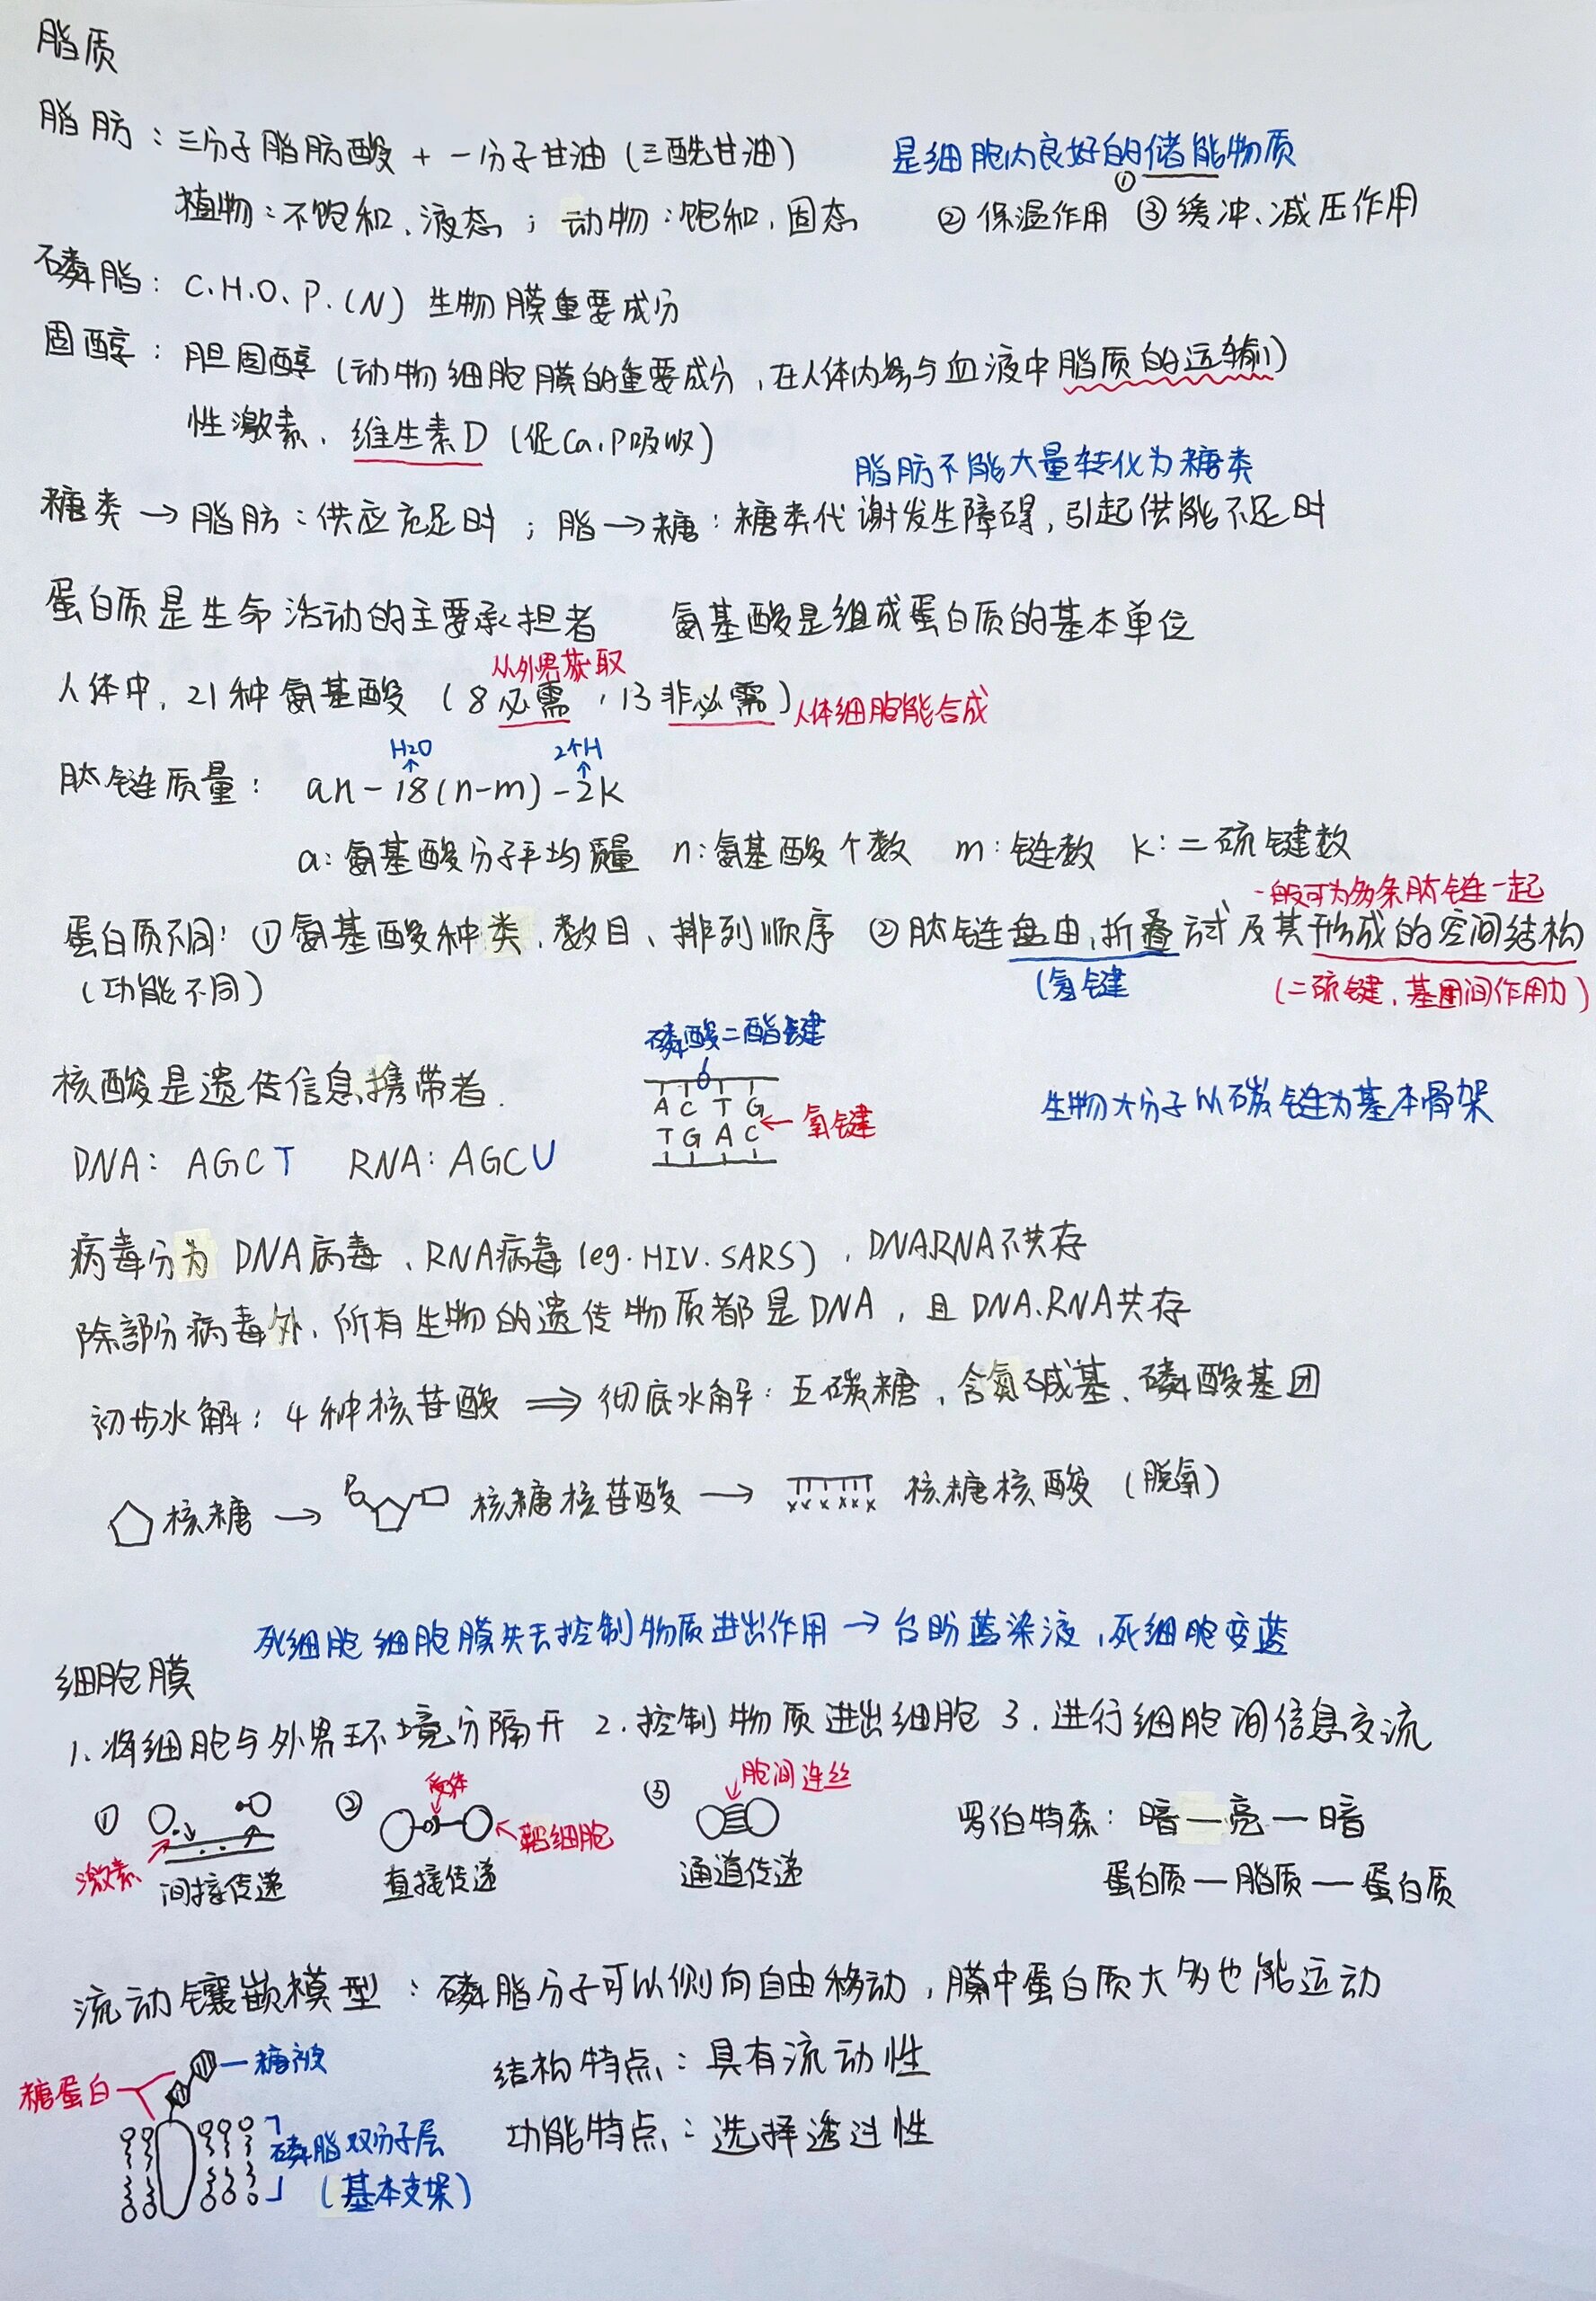 脂质
脂肪：三分子脂肪酸 + 一分子甘油（三酰甘油） 是细胞内良好的储能物质
①
植物：不饱和、液态；动物：饱和、固态 ②保温作用 ③缓冲、减压作用
磷脂：C.H.O.P.(N) 生物膜重要成分
固醇：胆固醇（动物细胞膜的重要成分，在人体内参与血液中脂质的运输）
性激素、维生素D（促Ca、P吸收）
脂肪不能大量转化为糖类
糖类→脂肪：供应充足时；脂→糖：糖类代谢发生障碍，引起供能不足时
蛋白质是生命活动的主要承担者 氨基酸是组成蛋白质的基本单位
从外界获取
人体中，21种氨基酸（8必需，13非必需）人体细胞能合成
H2O 2个H
肽链质量：an-18(n-m)-2k
a：氨基酸分子平均质量 n：氨基酸个数 m：链数 k：二硫键数
一般可为多条肽链一起
蛋白质不同：①氨基酸种类、数目、排列顺序 ②肽链盘曲、折叠方式及其形成的空间结构
（功能不同） （氢键 （二硫键、基团间作用力）
磷酸二酯键
核酸是遗传信息携带者. 生物大分子以碳链为基本骨架
A C T G
T G A C ← 氢键
DNA：AGCT RNA：AGCU
病毒分为DNA病毒、RNA病毒（eg.HIV.SARS），DNARNA不共存
除部分病毒外，所有生物的遗传物质都是DNA，且DNA.RNA共存
初步水解：4种核苷酸 ⇒ 彻底水解：五碳糖、含氮碱基、磷酸基团
核糖 → 核糖核苷酸 → 核糖核酸（脱氧）
死细胞细胞膜失去控制物质进出作用→台盼蓝染液，死细胞变蓝
细胞膜
1.将细胞与外界环境分隔开 2.控制物质进出细胞 3.进行细胞间信息交流
① ② 受体 ③ 胞间连丝
罗伯特森：暗—亮—暗
激素 靶细胞
间接传递 直接传递 通道传递
蛋白质—脂质—蛋白质
流动镶嵌模型：磷脂分子可以侧向自由移动，膜中蛋白质大多也能运动
糖被
结构特点：具有流动性
糖蛋白
磷脂双分子层
功能特点：选择透过性
（基本支架）